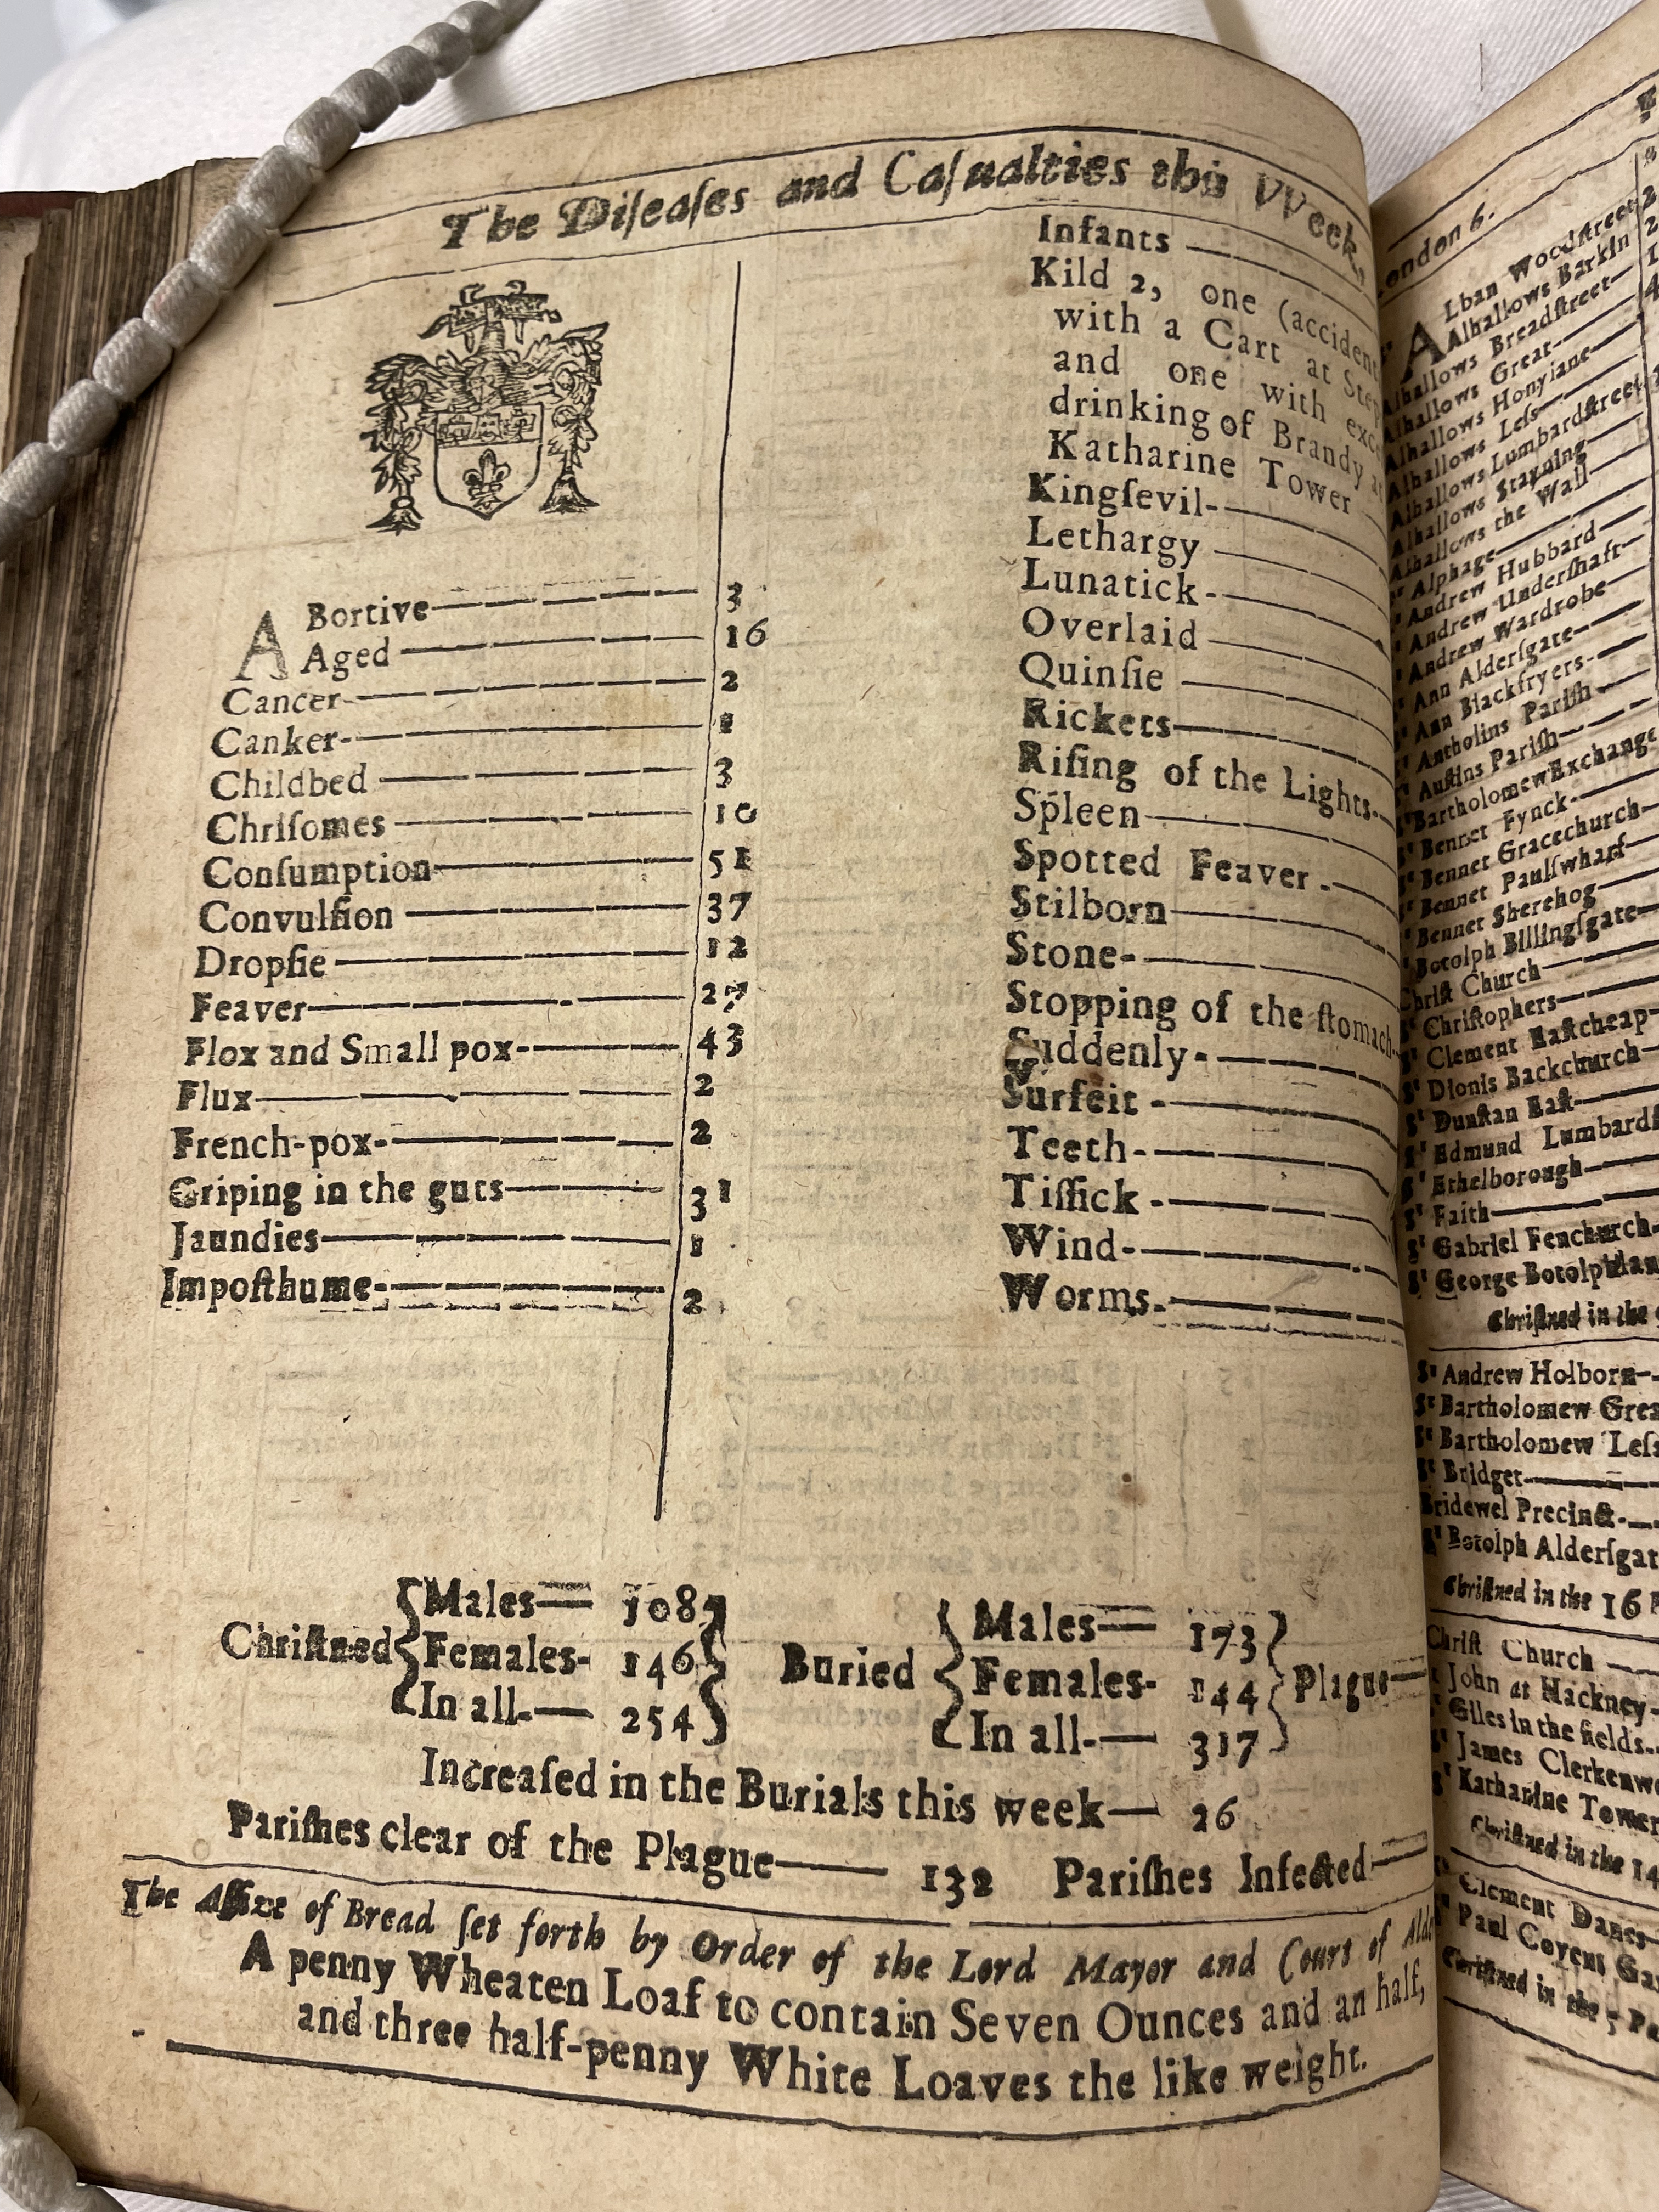 The Diſeaſes and Caſualties this VVeek.
ABortive 3
Aged 16
Cancer 2
Canker 1
Childbed 3
Chriſomes 10
Conſumption 51
Convulſion 37
Dropſie 12
Feaver 27
Flox and Small pox 43
Flux 2
French-pox 2
Griping in the guts 31
Jaundies 1
Impoſthume 2
Infants
Kild 2, one (acciden
with a Cart at Step
and one with exc
drinking of Brandy at
Katharine Tower
Kingſevil
Lethargy
Lunatick
Overlaid
Quinſie
Rickets
Riſing of the Lights
Spleen
Spotted Feaver
Stilborn
Stone
Stopping of the ſtomach
Suddenly
Surfeit
Teeth
Tiſſick
Wind
Worms
Chriſtned
Males 108
Females 146
In all 254
Buried
Males 173
Females 144
In all 317
Plague
Increaſed in the Burials this week 26
Pariſhes clear of the Plague 132 Pariſhes Infected
The Aſſize of Bread ſet forth by Order of the Lord Mayor and Court of Ald
A penny Wheaten Loaf to contain Seven Ounces and an half,
and three half-penny White Loaves the like weight.
ondon 6.
ALban Woodſtreet
Alhallows Barkin
Alhallows Breadſtreet
Alhallows Great
Alhallows Honylane
Alhallows Leſs
Alhallows Lumbardſtreet
Alhallows Stayning
Alhallows the Wall
Sᵗ Alphage
Sᵗ Andrew Hubbard
Sᵗ Andrew Underſhaft
Sᵗ Andrew Wardrobe
Sᵗ Ann Alderſgate
Sᵗ Ann Blackfryers
Sᵗ Antholins Pariſh
Sᵗ Auſtins Pariſh
Sᵗ Bartholomew Exchange
Sᵗ Bennet Fynck
Sᵗ Bennet Gracechurch
Sᵗ Bennet Paulſwharf
Sᵗ Bennet Sherehog
Sᵗ Botolph Billingſgate
Chriſt Church
Sᵗ Chriſtophers
Sᵗ Clement Eaſtcheap
Sᵗ Dionis Backchurch
Sᵗ Dunſtan Eaſt
Sᵗ Edmund Lumbardſ
Sᵗ Ethelborough
Sᵗ Faith
Sᵗ Gabriel Fenchurch
Sᵗ George Botolphlan
Chriſtned in the
Sᵗ Andrew Holborn
Sᵗ Bartholomew Grea
Sᵗ Bartholomew Leſs
Sᵗ Bridget
Bridewel Precinct
Sᵗ Botolph Alderſgat
Chriſtned in the 16 P
Chriſt Church
John at Hackney
Giles in the fields
Sᵗ James Clerkenwe
Sᵗ Katharine Tower
Chriſtned in the 14
Clement Danes
Paul Covent Ga
Chriſtned in the 5 Pa